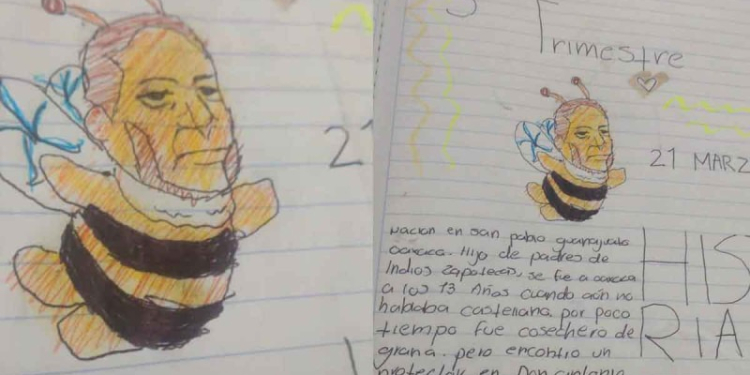 2
Trimestre
21 MARZ
HIS
RIA
Nacion en san pablo guanajuala
oaxaca. Hijo de padres de
Indios zapotecas, se fue a oaxaca
a los 13 Años cuando aún no
hababa castenana por poco
tiempo fue cosechero de
grana. pero encontro un
protector en Don